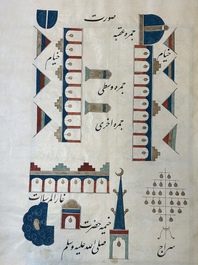 صورت
جمرهٔ عقبه
خیام
خیام
جمرهٔ وسطی
جمرهٔ اخری
غار المرسلات
خیمه حضرت
صلی الله علیه وسلم
سراج